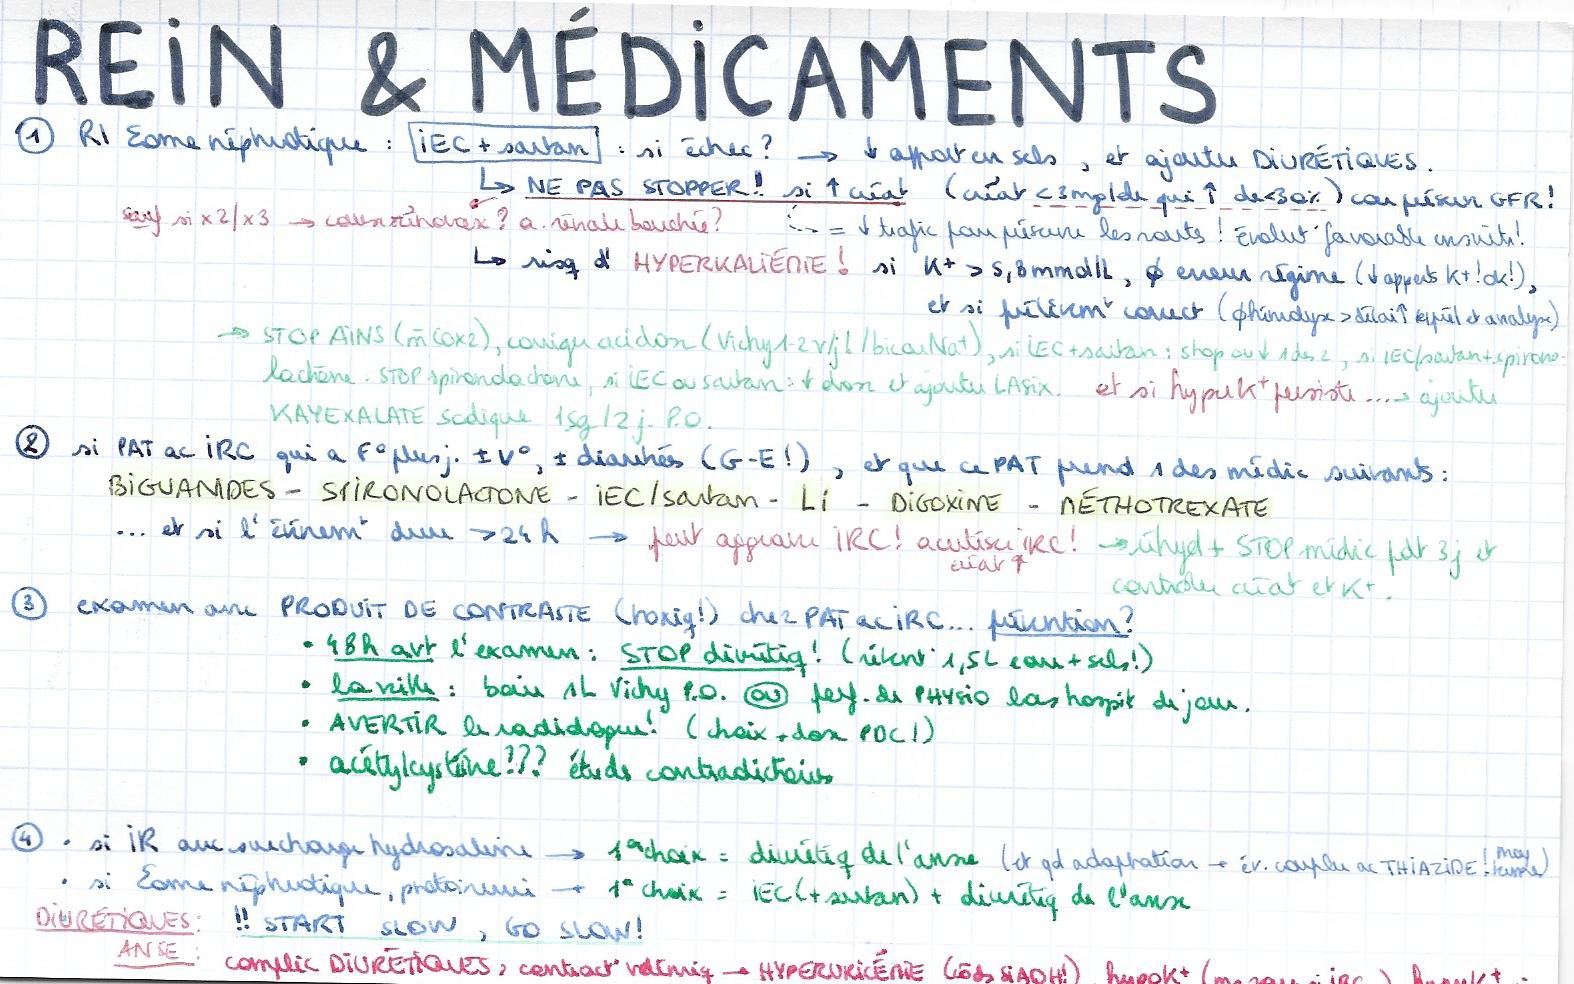 REIN & MÉDICAMENTS
① RI Σome néphrotique : iEC + sartan : si échec ? → ↓ apport en sels, et ajouter DIURÉTIQUES.
↳ NE PAS STOPPER !! si ↑ créat (créat <3mg/dl qui ↑ de <30%) car préserv GFR !
sauf si x2/x3 → a. rénale bouchée ? = ↓ trafic pour préserver les routs ! Évolut° favorable ensuite !
↳ risq d' HYPERKALIÉMIE ! si K+ > 5,8 mmol/L, ∅ erreur régime (↓ apports K+ ! ok !),
et si prélèvem^t correct (∅ hémolyse > délai ↑ et analyse)
→ STOP AiNS (m̄ COX2), corriger acidose (Vichy 1-2 v/j ! / bicar Na+), si iEC + sartan : stop ou ↓ 1 des 2, si iEC/sartan + spirono-
lactone : STOP spironolactone, si iEC ou sartan : ↓ dose et ajouter LASIX. et si hyper K+ persiste ... → ajouter
KAYEXALATE sodique 15g/2 j. P.O.
② si PAT ac iRC qui a F° plus j. ± V°, ± diarrhées (G-E !), et que ce PAT prend 1 des médic suivants :
BIGUANIDES - SPIRONOLACTONE - iEC/sartan - Li - DIGOXINE - MÉTHOTREXATE
... et si l'événem^t dure > 24 h → peut aggraver iRC ! acutiser iRC ! → réhyd + STOP médic pdt 3j et
créat ↑ contrôler créat et K+.
③ examen avec PRODUIT DE CONTRASTE (toxiq !) chez PAT ac iRC... prévention ?
• 48h avt l'examen : STOP diurétiq ! (1,5L eau + sels !)
• la veille : boire 1L Vichy P.O. OU perf. de PHYSIO hospit de jour.
• AVERTIR le radiologue ! (choix + dose PDC !)
• acétylcystéine ??? études contradictoires
④ • si iR avec surcharge hydrosaline → 1^er choix = diurétiq de l'anse (et gd adaptation → év. coupler ac THIAZIDE !)
• si Σome néphrotique, protéinurie → 1^er choix = iEC (+ sartan) + diurétiq de l'anse
DIURÉTIQUES : !! START SLOW, GO SLOW !
ANSE : complic DIURÉTIQUES : contract° volémiq → HYPERURICÉMIE (SIADH !), hypoK+